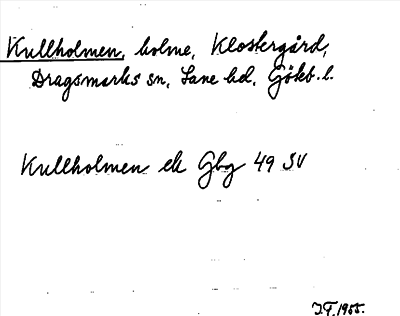 Kullholmen, holme, Klostergård,
Dragsmarks sn, Lane hd, Göteb. l.
Kullholmen ek Gbg 49 SV
1955.